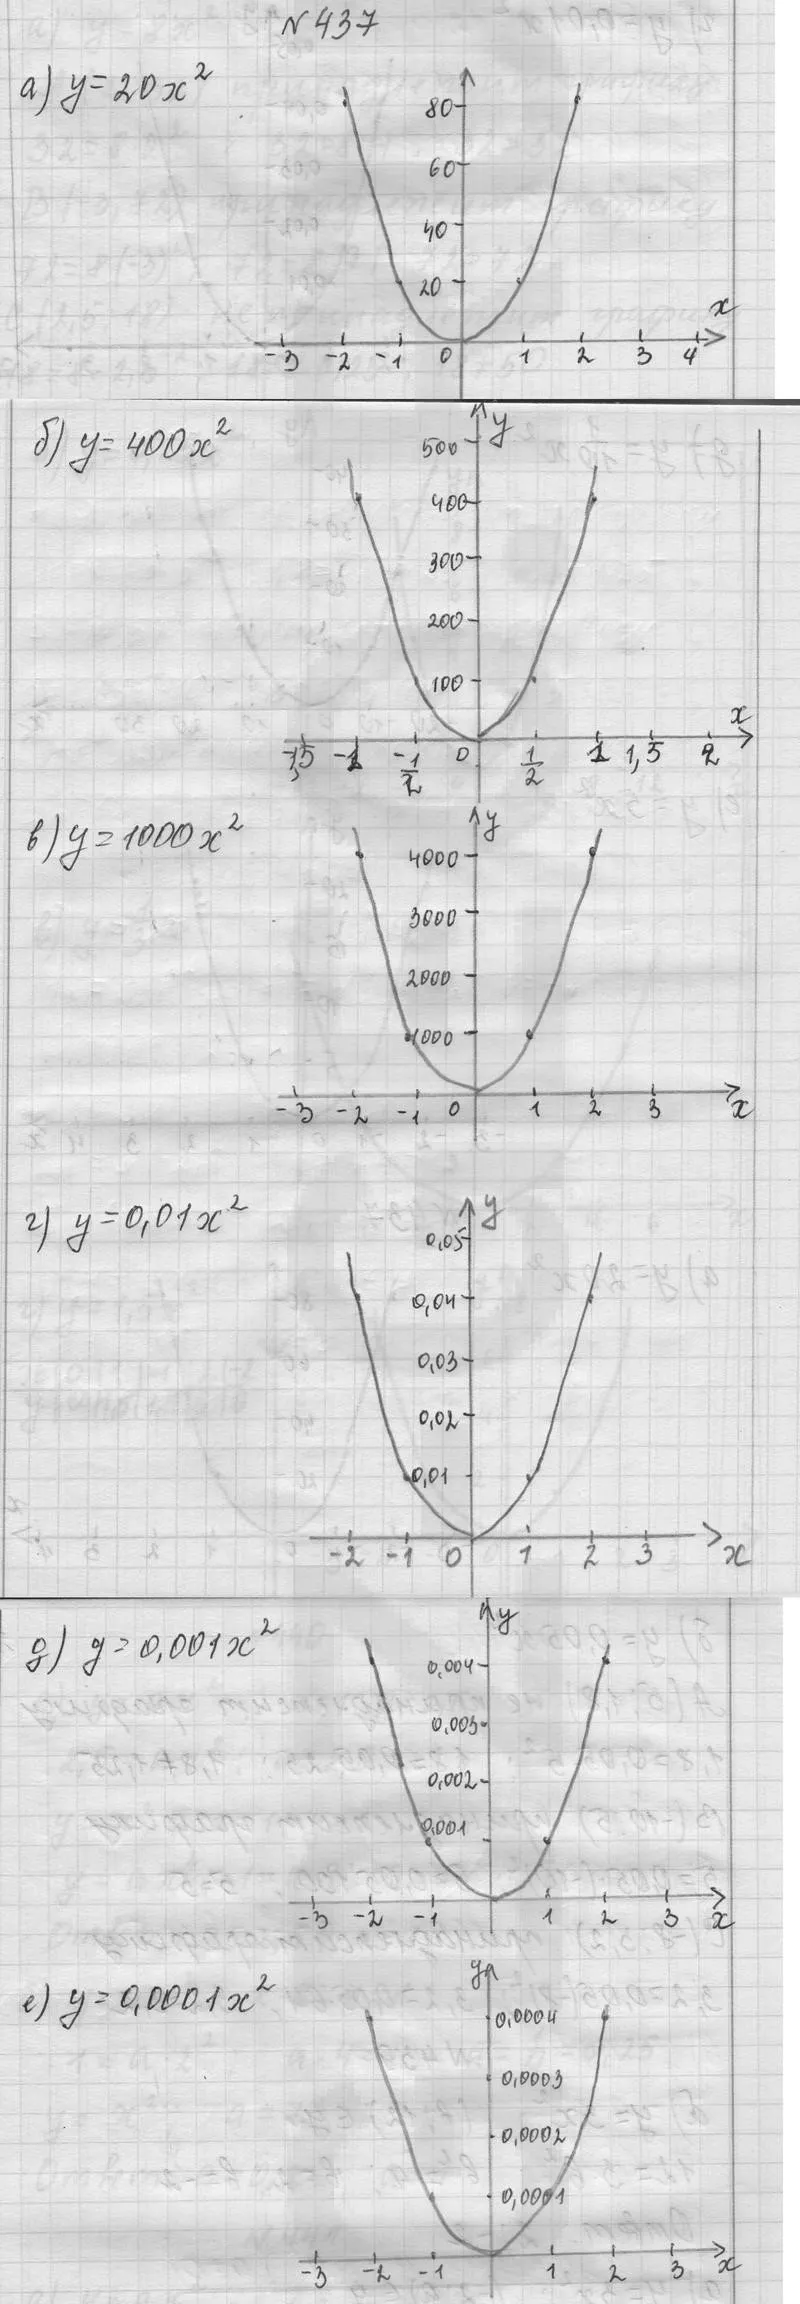 N 437
а) y = 20x²
80
60
40
20
x
-3 -2 -1 0 1 2 3 4
б) y = 400x²
y
500
400
300
200
100
x
-1,5 -1 -1/2 0 1/2 1 1,5 2
в) y = 1000x²
y
4000
3000
2000
1000
-3 -2 -1 0 1 2 3 x
г) y = 0,01x²
y
0,05
0,04
0,03
0,02
0,01
-2 -1 0 1 2 3 x
д) y = 0,001x²
y
0,004
0,003
0,002
0,001
-3 -2 -1 1 2 3 x
е) y = 0,0001x²
y
0,0004
0,0003
0,0002
0,0001
-3 -2 -1 1 2 3 x